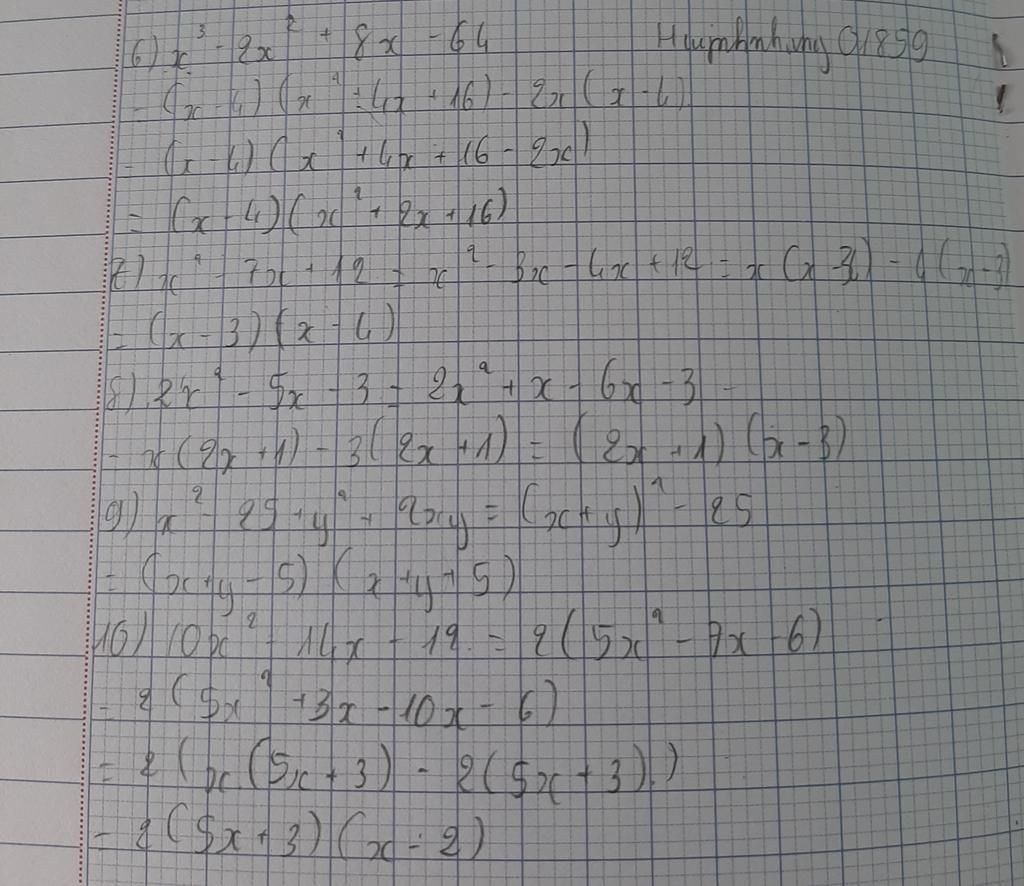 6) x³ - 2x² + 8x - 64 Huynhnhung01859
= (x - 4)(x² + 4x + 16) - 2x(x - 4)
= (x - 4)(x² + 4x + 16 - 2x)
= (x - 4)(x² + 2x + 16)
7) x² - 7x + 12 = x² - 3x - 4x + 12 = x(x - 3) - 4(x - 3)
= (x - 3)(x - 4)
8) 2x² - 5x - 3 = 2x² + x - 6x - 3 =
= x(2x + 1) - 3(2x + 1) = (2x + 1)(x - 3)
9) x² - 25 + y² + 2xy = (x + y)² - 25
= (x + y - 5)(x + y + 5)
10) 10x² - 14x - 12 = 2(5x² - 7x - 6)
= 2(5x² + 3x - 10x - 6)
= 2(x(5x + 3) - 2(5x + 3))
= 2(5x + 3)(x - 2)